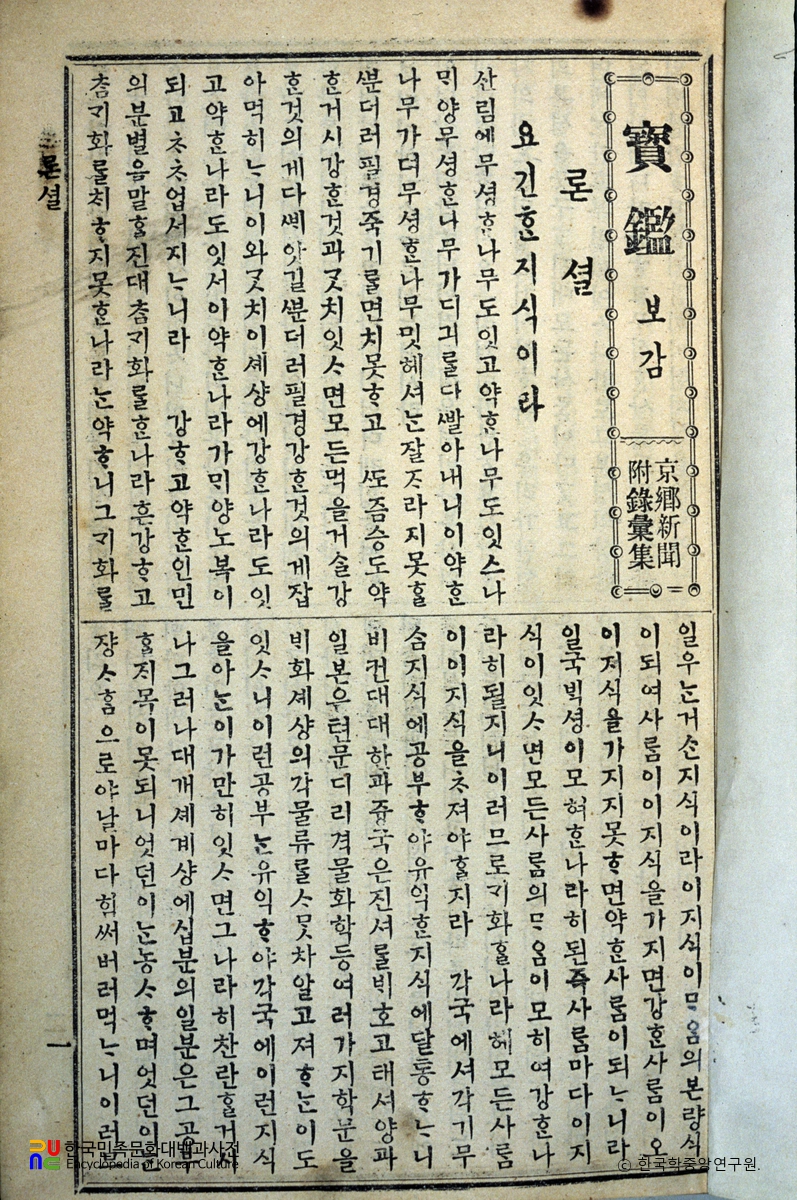 寶鑑 보감
京鄕新聞
附錄彙集
론셜
요긴ᄒᆞᆫ지식이라
산림에무셩ᄒᆞᆫ나무도잇고약ᄒᆞᆫ나무도잇스나
ᄆᆡ양무셩ᄒᆞᆫ나무가디긔를다ᄲᅡᆯ아내니이약ᄒᆞᆫ
나무가더무셩ᄒᆞᆫ나무밋헤셔ᄂᆞᆫ잘ᄌᆞ라지못ᄒᆞᆯ
ᄲᅮᆫ더러필경죽기를면치못ᄒᆞ고 ᄯᅩ즘승도약
ᄒᆞᆫ거시강ᄒᆞᆫ것과ᄀᆞᆺ치잇ᄉᆞ면모든먹을거슬강
ᄒᆞᆫ것의게다ᄲᅦ앗길ᄲᅮᆫ더러필경강ᄒᆞᆫ것의게잡
아먹히ᄂᆞ니이와ᄀᆞᆺ치이셰샹에강ᄒᆞᆫ나라도잇
고약ᄒᆞᆫ나라도잇서이약ᄒᆞᆫ나라가ᄆᆡ양노복이
되고ᄎᆞᄎᆞ업서지ᄂᆞ니라 강ᄒᆞ고약ᄒᆞᆫ인민
의분별을말ᄒᆞᆯ진대ᄎᆞᆷᄀᆡ화ᄅᆞᆯᄒᆞᆫ나라흔강ᄒᆞ고
ᄎᆞᆷᄀᆡ화ᄅᆞᆯ치ᄒᆞ지못ᄒᆞᆫ나라ᄂᆞᆫ약ᄒᆞ니그ᄀᆡ화ᄅᆞᆯ
일우ᄂᆞᆫ거슨지식이라이지식이ᄆᆞᄋᆞᆷ의본량식
이되여사ᄅᆞᆷ이이지식을가지면강ᄒᆞᆫ사ᄅᆞᆷ이오
이지식을가지지못ᄒᆞ면약ᄒᆞᆫ사ᄅᆞᆷ이되ᄂᆞ니라
일국ᄇᆡᆨ셩이모혀ᄒᆞᆫ나라히된즉사ᄅᆞᆷ마다이지
식이잇ᄉᆞ면모든사ᄅᆞᆷ의ᄆᆞᄋᆞᆷ이모히여강ᄒᆞᆫ나
라히될지니이러므로ᄀᆡ화ᄒᆞᆯ나라헤모든사ᄅᆞᆷ
이이지식을ᄎᆞ져야ᄒᆞᆯ지라 각국에셔각기무
ᄉᆞᆷ지식에공부ᄒᆞ야유익ᄒᆞᆫ지식에달통ᄒᆞᄂᆞ니
비컨대대한과즁국은진셔를ᄇᆡ호고태셔양과
일본은텬문디리격물화학등여러가지학문을
ᄇᆡ화셰샹의각물류를ᄉᆞᄆᆞᆺ차알고져ᄒᆞᄂᆞᆫ이도
잇ᄉᆞ니이런공부ᄂᆞᆫ유익ᄒᆞ야각국에이런지식
을아ᄂᆞᆫ이가만히잇ᄉᆞ면그나라히찬란ᄒᆞᆯ거시
나그러나대개셰계샹에십분의일분은그공부
ᄒᆞᆯ지목이못되니엇던이ᄂᆞᆫ농ᄉᆞᄒᆞ며엇던이ᄂᆞᆫ
쟝ᄉᆞᄒᆞᆷ으로야날마다힘써버러먹ᄂᆞ니이러
론셜
一
한국민족문화대백과사전
Encyclopedia of Korean Culture
© 한국학중앙연구원.